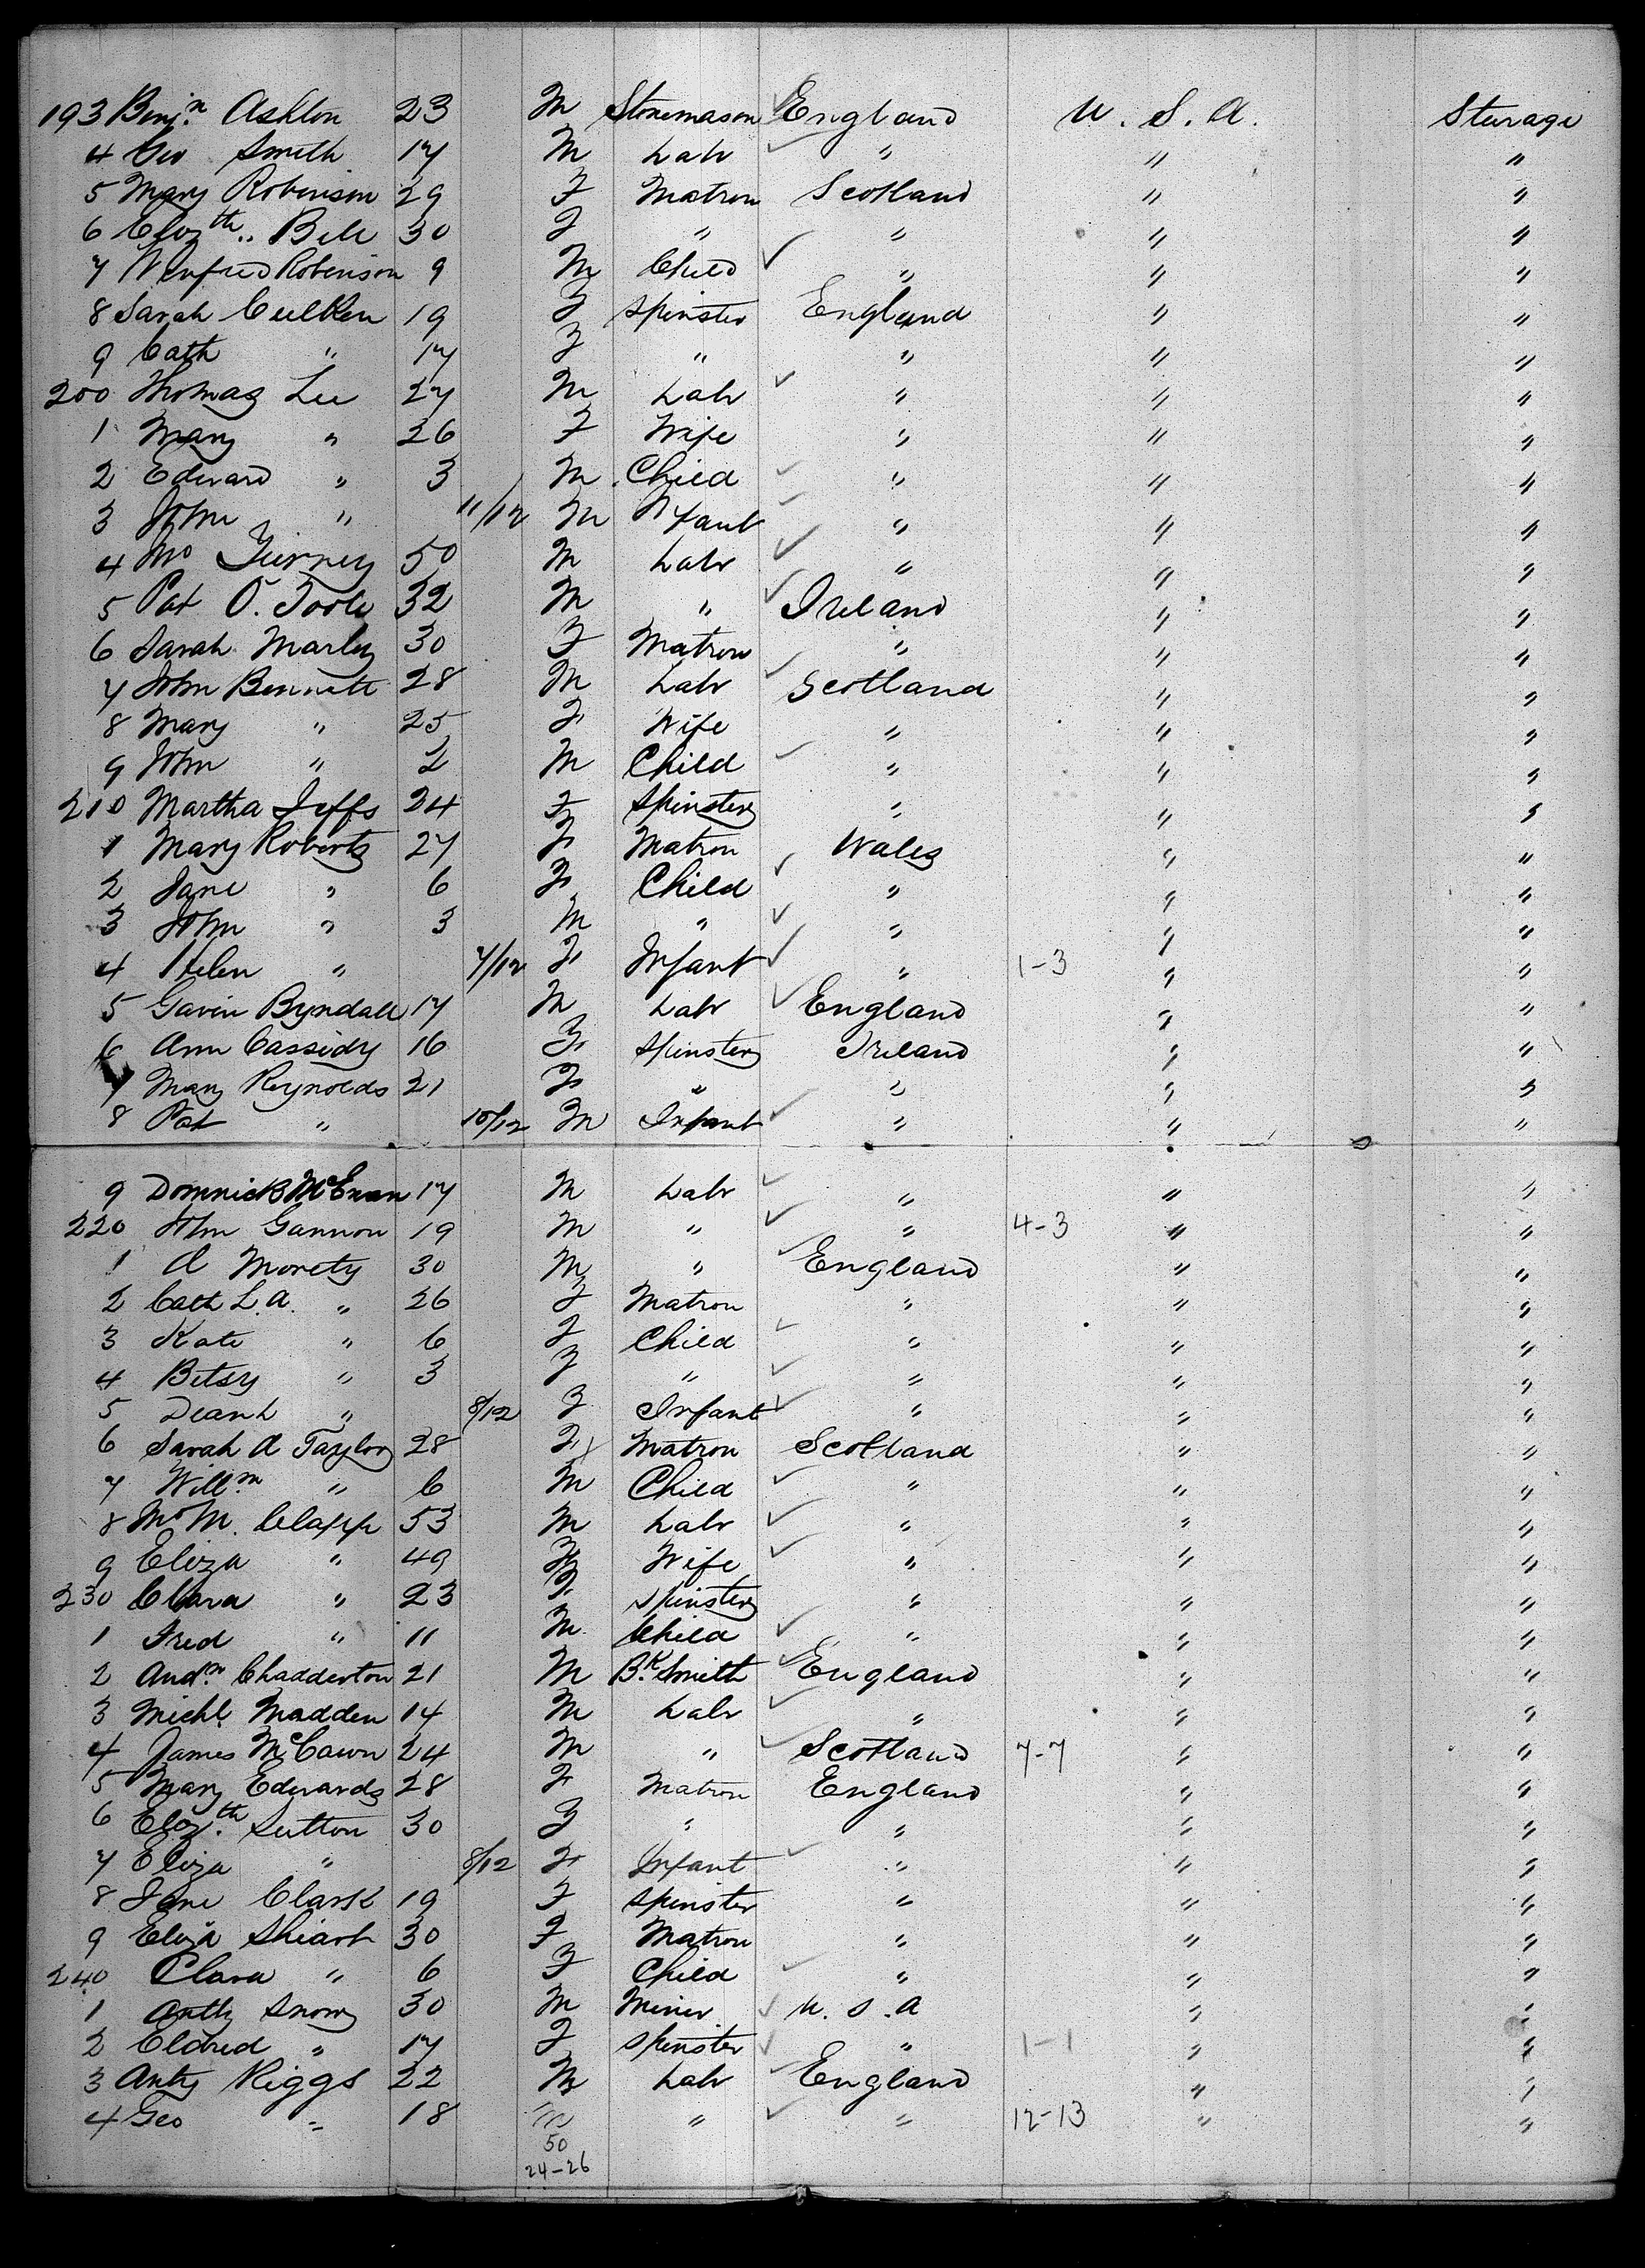 193 Benj.n Ashton 23 M Stonemason England U. S. A. Steerage
4 Geo Smith 17 M Labr " " "
5 Mary Robinson 29 F Matron Scotland " "
6 Elizth.. Bell 30 F " " " "
7 Winfred Robinson 9 M Child " " "
8 Sarah Culken 19 F Spinster England " "
9 Cath " 17 F " " " "
200 Thomas Lee 27 M Labr " " "
1 Mary " 26 F Wife " " "
2 Edward " 3 M Child " " "
3 John " 11/12 M Infant " " "
4 Mo Tierney 50 M Labr " " "
5 Pat O. Toole 32 M " Ireland " "
6 Sarah Marley 30 F Matron " " "
7 John Bennett 28 M Labr Scotland " "
8 Mary " 25 F Wife " " "
9 John " 2 M Child " " "
210 Martha Jeffs 24 F Spinster " " "
1 Mary Roberts 27 F Matron Wales " "
2 Jane " 6 F Child " " "
3 John " 3 M " " " "
4 Helen " 7/12 F Infant " 1-3 " "
5 Gavin Byndall 17 M Labr England " "
6 Ann Cassidy 16 F Spinster Ireland " "
7 Mary Reynolds 21 F " " " "
8 Pat " 10/12 M Infant " " "
9 Domnick 17 M Labr " " "
220 John Gannon 19 M " " 4-3 " "
1 A Morety 30 M " England " "
2 Cath L.A. " 26 F Matron " " "
3 Kate " 6 F Child " " "
4 Betsy " 3 F " " " "
5 " 8/12 F Infant " " "
6 Sarah A Taylor 28 F Matron Scotland " "
7 Willm " 6 M Child " " "
8 Clapp 53 M Labr " " "
9 Eliza " 49 F Wife " " "
230 Clara " 23 F Spinster " " "
1 Fred " 11 M Child " " "
2 Andw. Chadderton 21 M Bk. Smith England " "
3 Michl. Madden 14 M Labr " " "
4 James McCawn 24 M " Scotland 7-7 " "
5 Mary Edwards 28 F Matron England " "
6 Elizth. Sutton 30 F " " " "
7 Eliza " 8/12 F Infant " " "
8 Jane Clark 19 F Spinster " " "
9 Eliza 30 F Matron " " "
240 Clara " 6 F Child " " "
1 Anth Snow 30 M Miner U. S. A " "
2 Eldred " 17 F Spinster " 1-1 " "
3 Anty Riggs 22 M Labr England " "
4 Geo " 18 M " " 12-13 " "
50
24-26